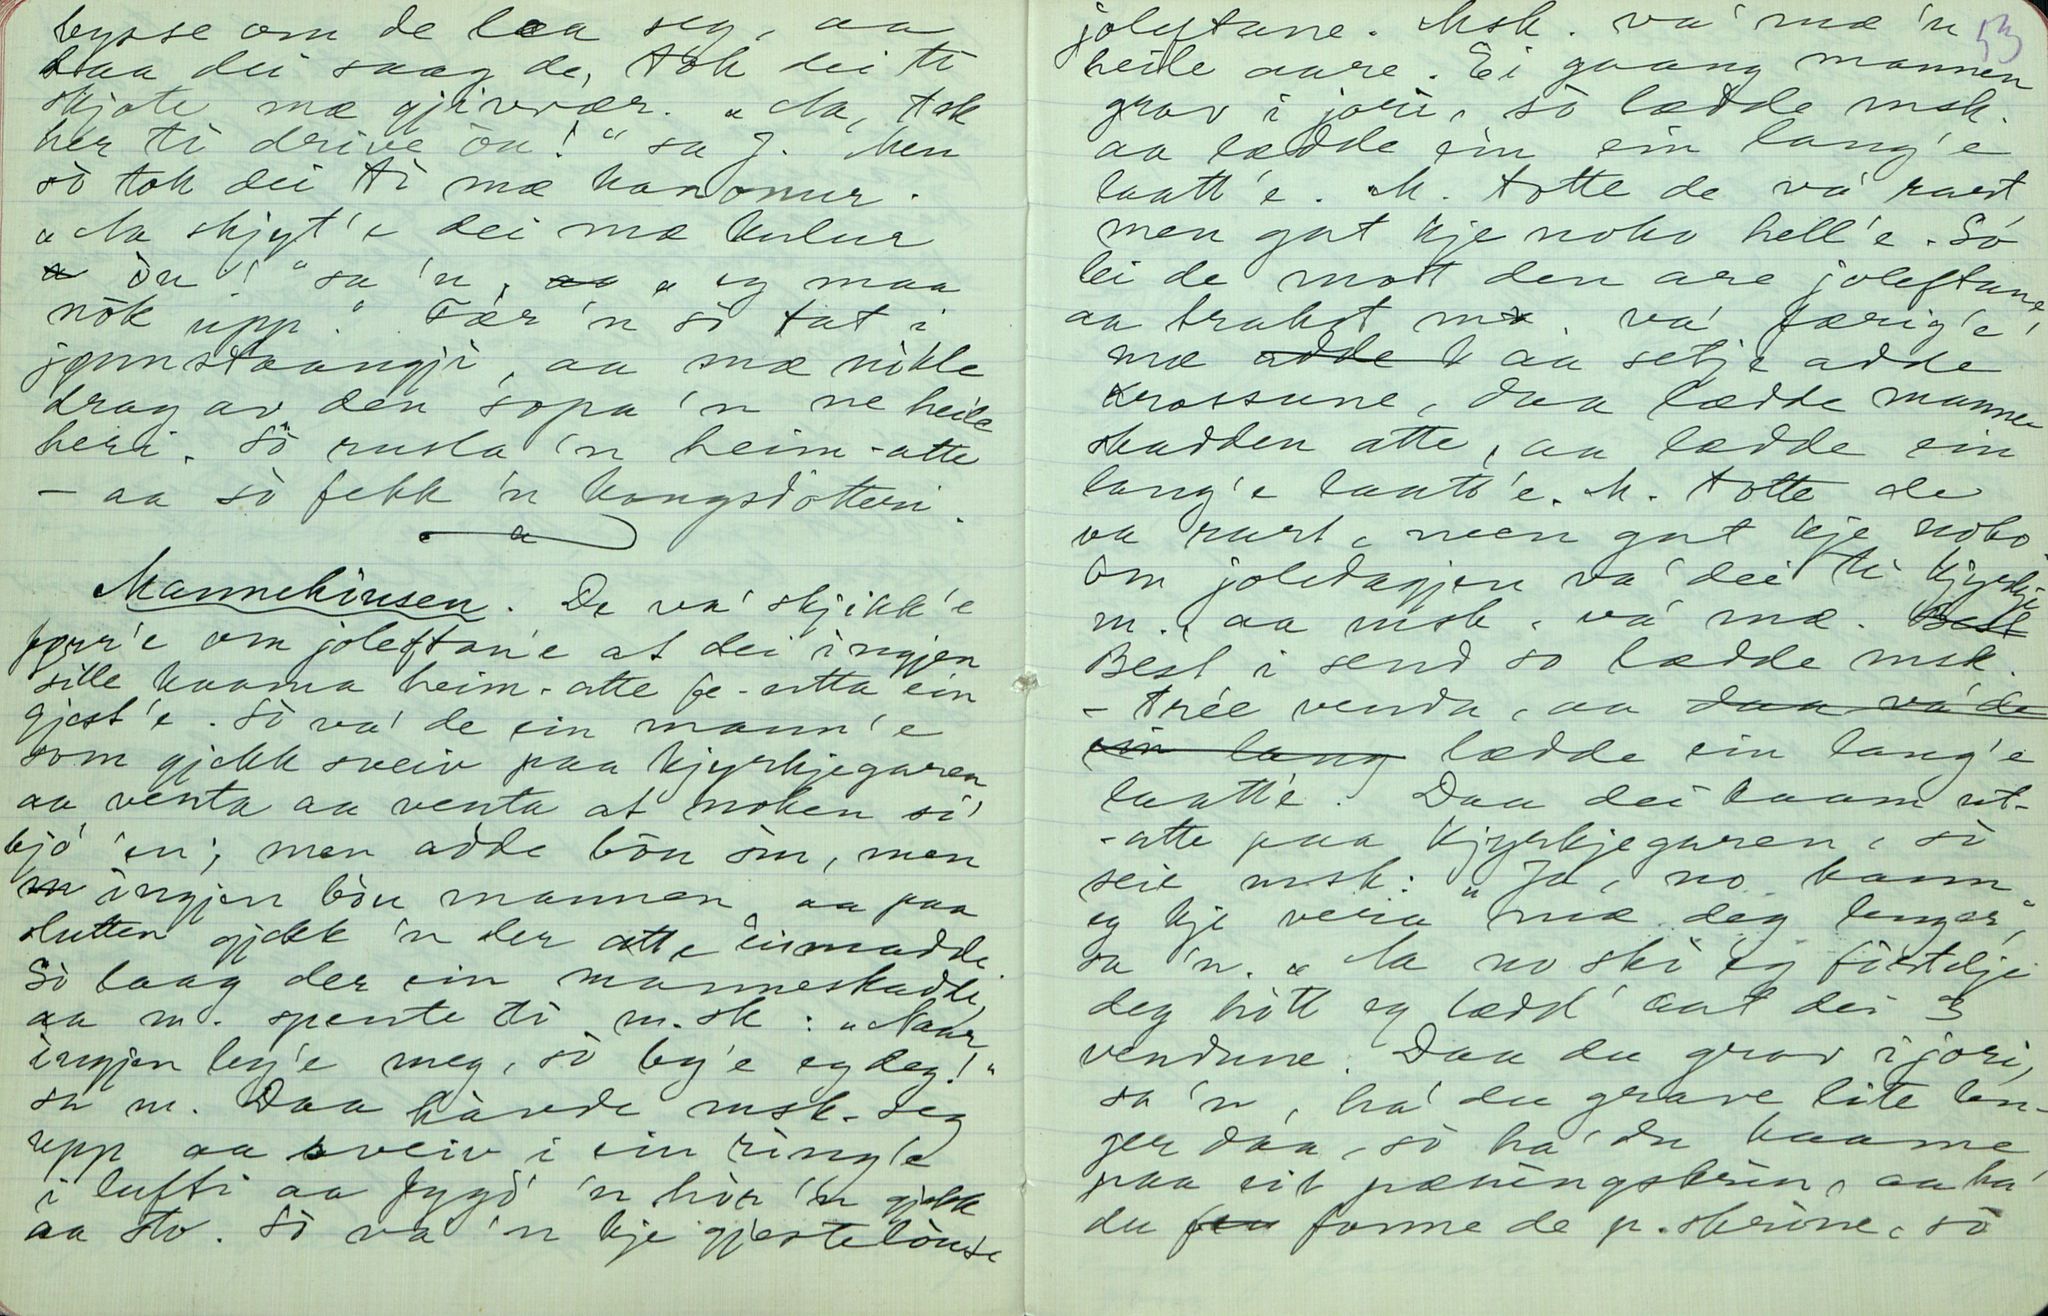 bysse om de laa seg, aa
daa dei saag de, tok dei ti
skjote mæ gjeivær. „Na, tok
her ti drive òn!“ sa J. Men
sò tok dei ti mæ kanonur.
„Na skjyt'e dei mæ kulur
òn!“ sa 'n, „eg maa
nòk upp.“ Fær 'n sò tat i
jønnstaangji, aa mæ nikle
drag av den sopa 'n ne heile
heri. Sò rusla 'n heim-atte
– aa sò fekk 'n kongsdotteri.
Mannehausen. De va' skjikk'e
fyrr'e om joleftan'e at dei ingjen
sille kaama heim-atte fe-utta ein
gjest'e. Sò va' de ein mann'e
som gjekk sveiv paa kjyrkjegaren
aa venta aa venta at noken si'
bjo 'en; men adde bòu òin, men
ingjen bòu mannen aa paa
slutten gjekk 'n der atte eismadde.
Sò laag der ein manneskadde,
aa m. spente ti m.sk: „Naar
ingjen by'e meg, sò by'e eg deg!“
sa m. Daa hævde msk. seg
upp aa sveiv i ein ring'e
i lufti aa fygd' 'n hòr 'n gjekk
aa sto. Sò va 'n kje gjestelòuse
53
joleftane. Msk. va' mæ 'n
heile aare. Ei gaang mannen
grov i jori, sò lædde msk.
aa lædde ein ein lang'e
laatt'e. M. totte de va' rart
men gat kje noko hell'e. Sò
lei de mott den are joleftane
aa brakst m. va' færig'e
mæ aa setje adde
krossune, daa lædde manne-
skadden atte, aa lædde ein
lang'e laatt'e. M. totte de
va rart, men gat kje noko.
Om joledagjen va' dei ti kjyrkje
m., aa msk. va' mæ.
Best i send so lædde msk.
– tree venda, aa
lædde ein lang'e
laatt'e. Daa dei kaam ut-
-atte paa kjyrkjegaren, sò
seie msk: „Ja, no kann
eg kje vera mæ deg lenger,“
sa 'n. „Na no ski eg fistelje
deg hòtt eg lædd' aat dei 3
vendune. Daa du grov i jori,
sa 'n, ha' du grave lite len-
ger daa, sò ha' du kaame
paa eit pæningskrin, aa ha'
du fonne de p.skrine, sò